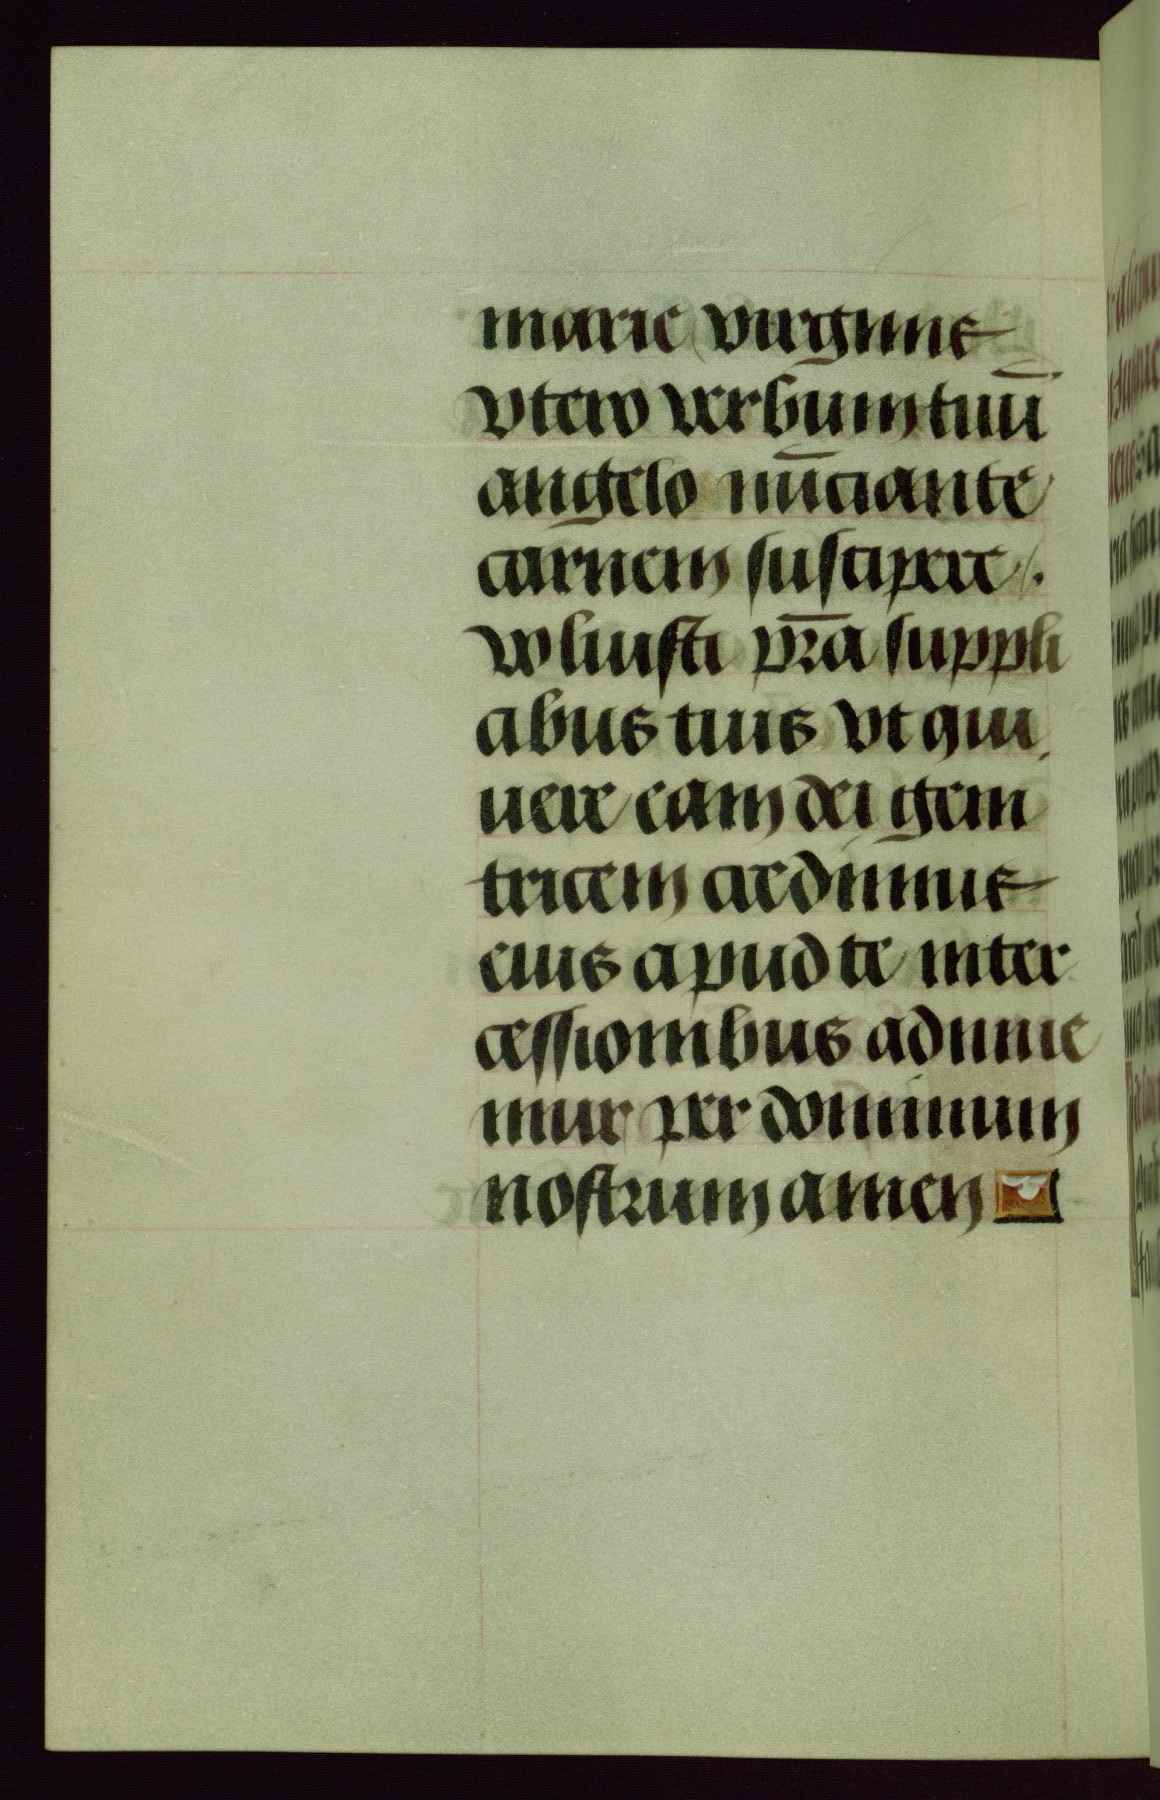 marie virginis
vtero verbum tuū
angelo nūciante
carnem suscipere.
voluisti pr̄a suppli
cibus tuis vt qui
uere eam dei geni
tricem credimus
eius apud te inter
cessionibus adiuue
mur per dominum
nostrum amen